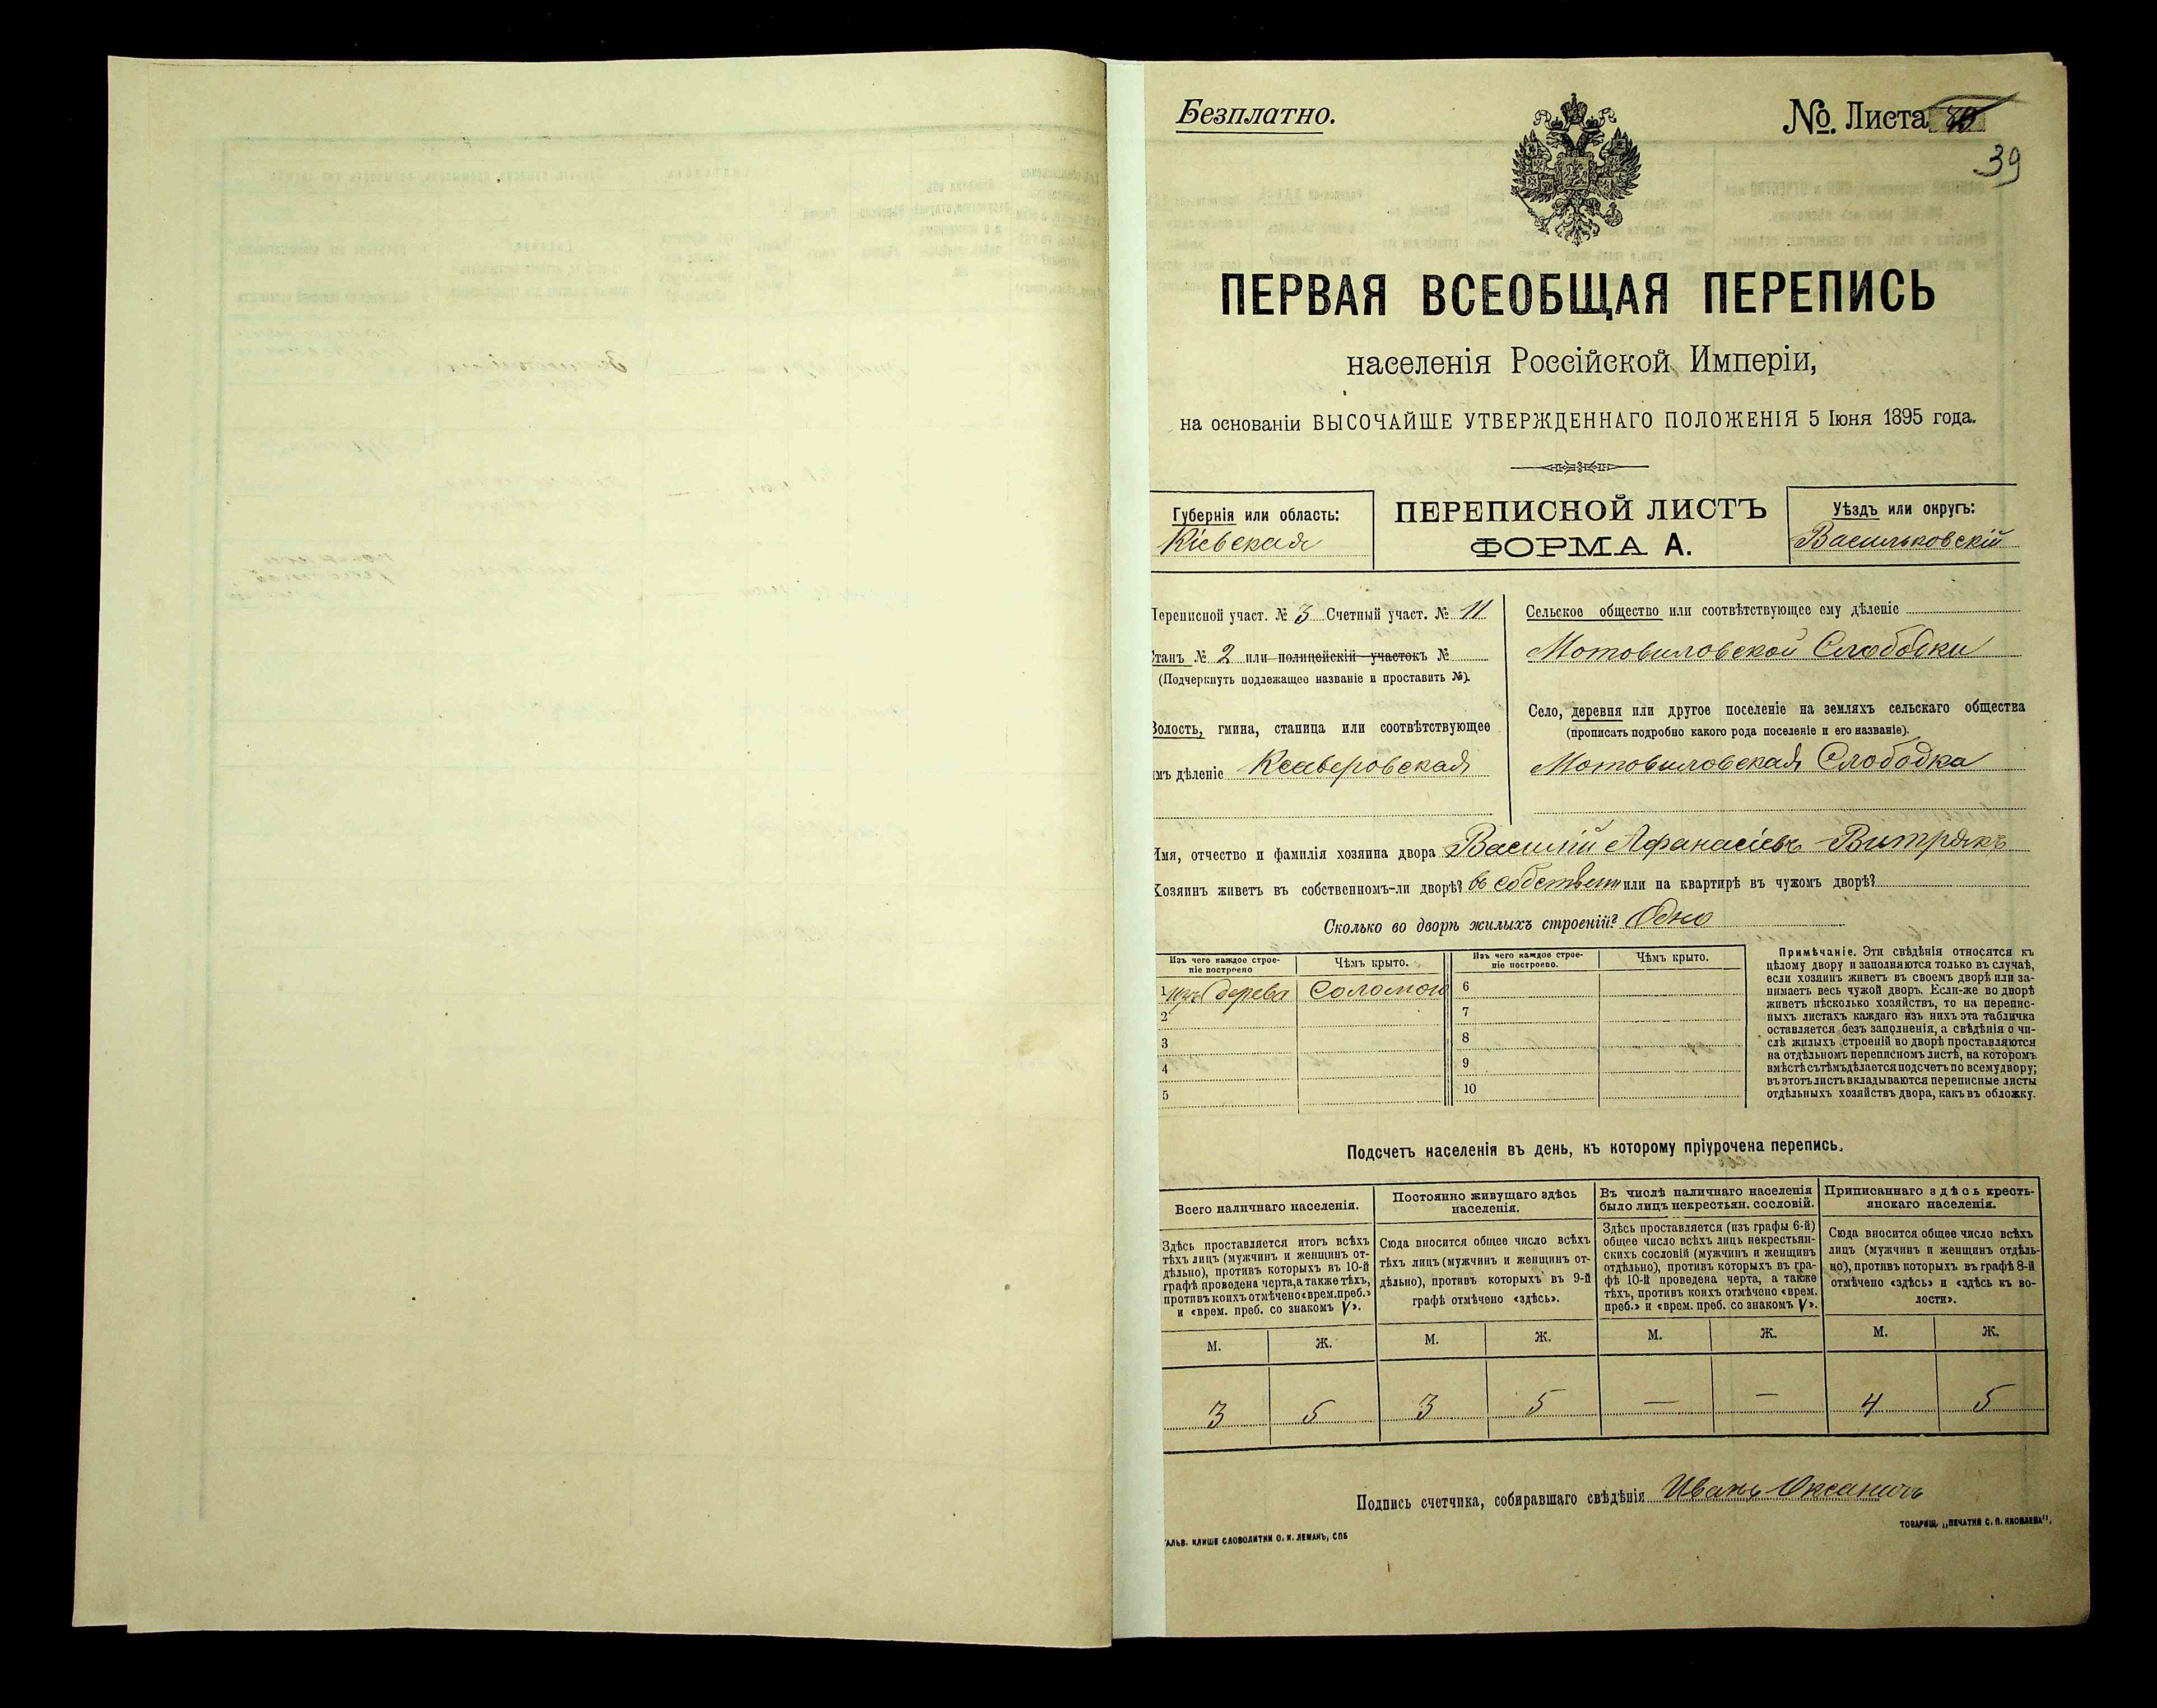 Безплатно.
№. Листа
39
ПЕРВАЯ ВСЕОБЩАЯ ПЕРЕПИСЬ
населенія Россійской Имперіи,
на основаніи ВЫСОЧАЙШЕ УТВЕРЖДЕННАГО ПОЛОЖЕНІЯ 5 Іюня 1895 года.
Губернія или область:
Кіевская
ПЕРЕПИСНОЙ ЛИСТЪ
ФОРМА А.
Уѣздъ или округъ:
Васильковскій
Переписной участ. № 3 Счетный участ. № 11
Станъ № 2 или полицейскій участокъ №
(Подчеркнуть подлежащее названіе и проставить №).
Волость, гмина, станица или соотвѣтствующее
имъ дѣленіе Ксаверовская
Сельское общество или соотвѣтствующее ему дѣленіе
Мотовиловской Слободки
Село, деревня или другое поселеніе на земляхъ сельскаго общества
(прописать подробно какого рода поселеніе и его названіе).
Мотовиловская Слободка
Имя, отчество и фамилія хозяина двора Василій Афанасіевъ Витрякъ
Хозяинъ живетъ въ собственномъ-ли дворѣ? въ собствен или на квартирѣ въ чужомъ дворѣ?
Сколько во дворѣ жилыхъ строеній? Одно
Изъ чего каждое строе-
ніе построено
Чѣмъ крыто.
Изъ чего каждое строе-
ніе построено.
Чѣмъ крыто.
1 изъ дерева Соломою
2
3
4
5
6
7
8
9
10
Примѣчаніе. Эти свѣдѣнія относятся къ
цѣлому двору и заполняются только въ случаѣ,
если хозяинъ живетъ въ своемъ дворѣ или за-
нимаетъ весь чужой дворъ. Если-же во дворѣ
живетъ нѣсколько хозяйствъ, то на перепис-
ныхъ листахъ каждаго изъ нихъ эта табличка
оставляется безъ заполненія, а свѣдѣнія о чи-
слѣ жилыхъ строеній во дворѣ проставляются
на отдѣльномъ переписномъ листѣ, на которомъ
вмѣстѣ съ тѣмъ дѣлается подсчетъ по всему двору;
въ этотъ листъ вкладываются переписные листы
отдѣльныхъ хозяйствъ двора, какъ въ обложку.
Подсчетъ населенія въ день, къ которому пріурочена перепись.
Всего наличнаго населенія.
Постоянно живущаго здѣсь
населенія.
Въ числѣ наличнаго населенія
было лицъ некрестьян. сословій.
Приписаннаго здѣсь кресть-
янскаго населенія.
Здѣсь проставляется итогъ всѣхъ
тѣхъ лицъ (мужчинъ и женщинъ от-
дѣльно), противъ которыхъ въ 10-й
графѣ проведена черта, а также тѣхъ,
противъ коихъ отмѣчено «врем. преб.»
и «врем. преб. со знакомъ V».
Сюда вносится общее число всѣхъ
тѣхъ лицъ (мужчинъ и женщинъ от-
дѣльно), противъ которыхъ въ 9-й
графѣ отмѣчено «здѣсь».
Здѣсь проставляется (изъ графы 6-й)
общее число всѣхъ лицъ некрестьян-
скихъ сословій (мужчинъ и женщинъ
отдѣльно), противъ которыхъ въ гра-
фѣ 10-й проведена черта, а также
тѣхъ, противъ коихъ отмѣчено «врем.
преб.» и «врем. преб. со знакомъ V».
Сюда вносится общее число всѣхъ
лицъ (мужчинъ и женщинъ отдѣль-
но), противъ которыхъ въ графѣ 8-й
отмѣчено «здѣсь» и «здѣсь къ во-
лости».
М. Ж. М. Ж. М. Ж. М. Ж.
3 5 3 5 — — 4 5
Подпись счетчика, собиравшаго свѣдѣнія Иванъ Оксаничъ
ГАЛЬВ. КЛИШЕ СЛОВОЛИТНИ О. И. ЛЕМАНЪ, СПБ
ТОВАРИЩ. „ПЕЧАТНЯ С. П. ЯКОВЛЕВА“.